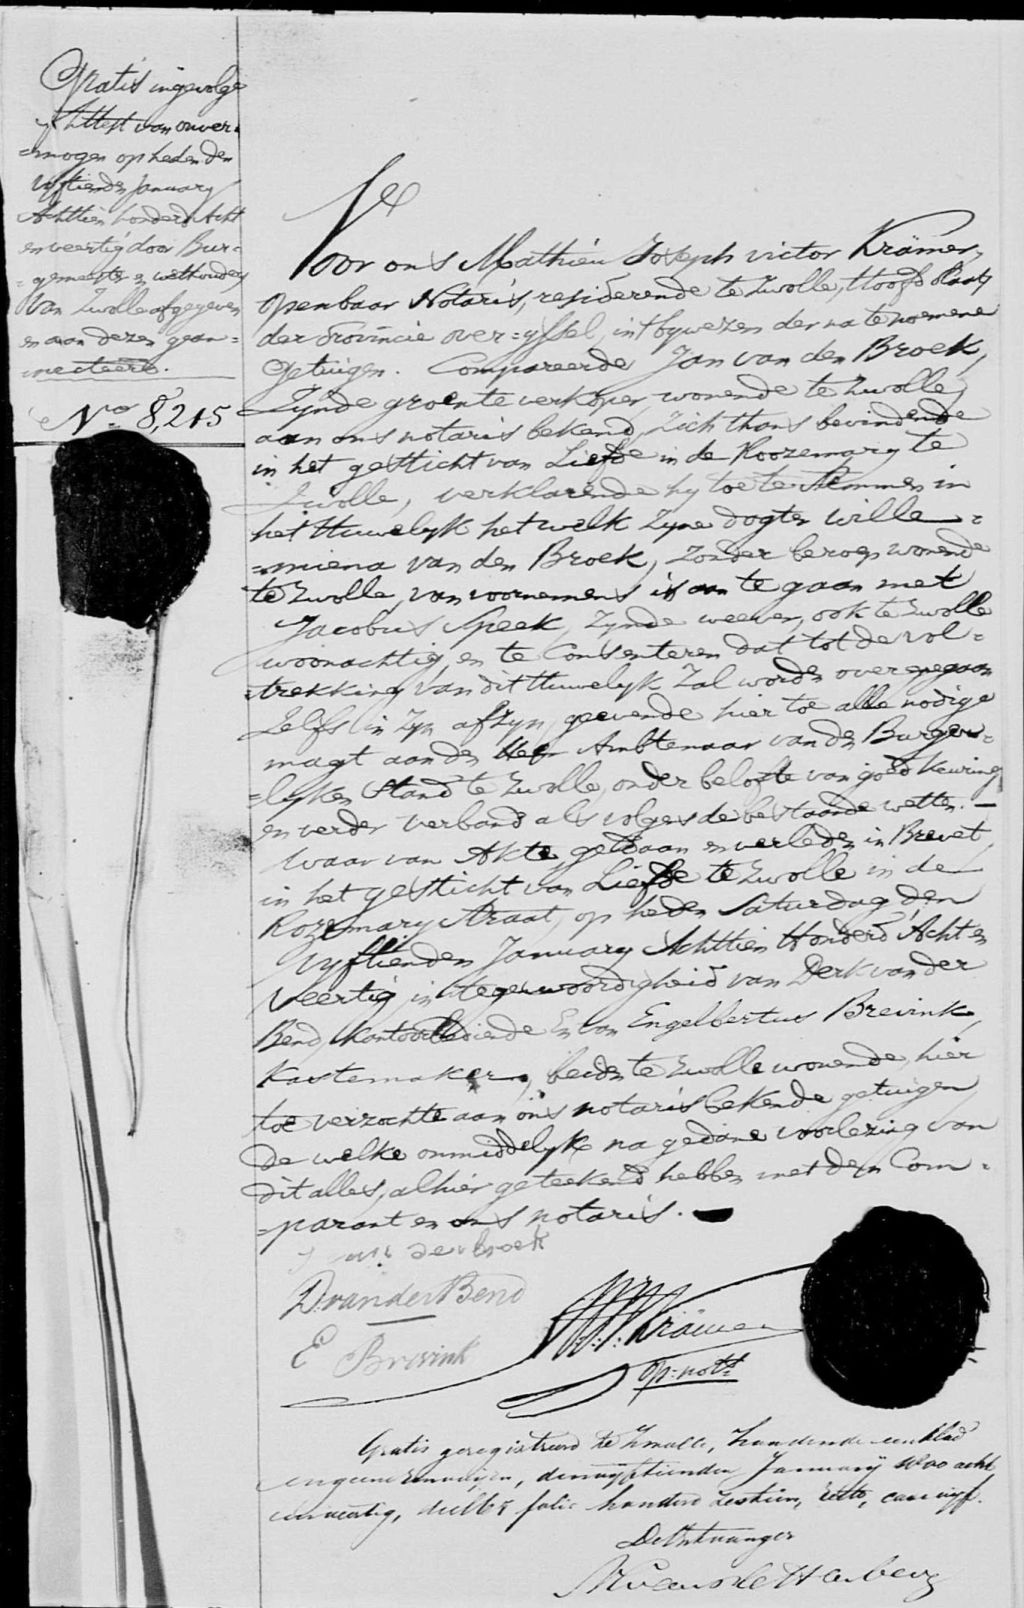 Gratis ingevolge
Attest van onver-
=mogen op heden den
vyftienden January
Achttien honderd Acht
en veertig door Bur-
=gemeester en wethouders
van Zwolle afgegeven
en aan dezen gean-
=necteerd.
No. 8,215
Voor ons Mathieu Joseph victor Krämer,
openbaar Notaris, residerende te Zwolle, Hoofd Plaats
der Provincie over=yssel, in bywezen der na te noemene
getuigen. Compareerde Jan van den Broek,
Zynde groente verkoper, wonende te Zwolle,
aan ons notaris bekend, zich thans bevindende
in het gesticht van Liefde in de Roozemary te
Zwolle, verklarende hy toe te stemmen in
het Huwelyk het welk Zyne dogter Wille-
=miena van den Broek, zonder beroep wonende
te Zwolle, van voornemens is aan te gaan met
Jacobus Speek, Zynde wever, ook te Zwolle
woonachtig, en te Consenteren dat tot de vol-
=trekking van dit Huwelyk Zal worden overgegaan
Zelfs in Zyn afZyn, geevende hier toe alle nodige
magt aan den Heer Ambtenaar van den Burger-
=lyken Stand te Zwolle, onder belofte van goedkeuring
en verder verband als volgens de bestaande wetten. —
Waar van Akte, gedaan en verleden in Brevet
in het gesticht van Liefde te Zwolle in de
Rozemary straat, op heden Saturdag den
vyftienden January Achttien Honderd Acht en
Veertig, in tegenwoordigheid van Derk van der
Bend, Kantoorbediende En van Engelbertus Brevink,
Kastemaker, beiden te Zwolle wonende, hier
toe verzochte aan ons notaris bekende getuigen
de welke onmiddelyk na gedane voorlezing van
dit alles, alhier geteekend hebben met den Com-
=parant en ons notaris.
van den broek
D van der Bend
E Brevink
M. J. V. Krämer
Op: nots
Gratis geregistreerd te Zwolle, houdende een blad
en geene renvoijen, den vyftienden January 1800 acht
en veertig, deel 68 folio honderd zestien, recto, case vijf.
De Ontvanger